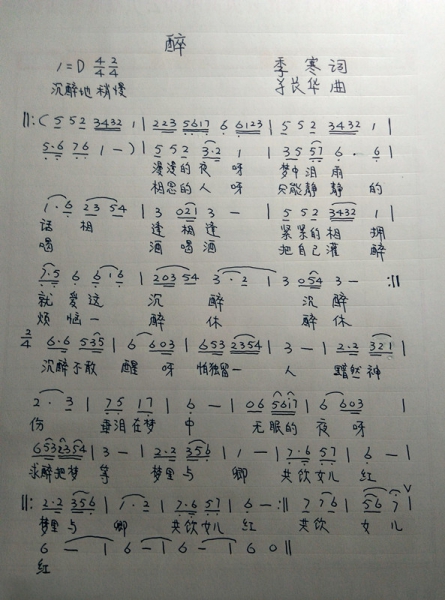 醉
1=D 4/4 2/4 季寒词
沉醉地 稍慢 曲
‖:( 5 5 2 3432 1 | 223 5617 6 6123 | 5 5 2 3432 1 |
5·6 76 1 — ) | 5 5 2 3·2 1 | 3 5 57 6 · 6 |
漫漫的夜 呀 梦中泪雨
相思的人 呀 只能静静的
1·6 23 54 | 3 021 3 — | 5 5 2 3432 1 |
话相 逢相逢 紧紧的相拥
喝 酒喝酒 把自己灌醉
7·5 6 616 | 203 54 3·2 1 | 3 054 3 — :‖
就爱这 沉醉 沉醉
烦恼一 醉休 醉休
2/4 6·6 535 | 6 603 | 653 2354 | 3 — | 2·2 321 |
沉醉不敢 醒呀 怕独留一 人 黯然神
2 · 3 | 75 17 | 6 — | 06 5617 | 6 603 |
伤 垂泪在梦 中 无眠的 夜呀
6532354 | 3 — | 2·2 356 | 1 — | 7·6 57 | 6 — |
求醉把梦 等 梦里与 卿 共饮女儿 红
‖: 2·2 356 | 1·2 | 7·6 57 | 6 — :‖ 7 76 | 56 7 |
梦里与 卿 共饮女儿 红 共饮 女儿
6 — | 6 — | 6 — | 6 0 ‖
红